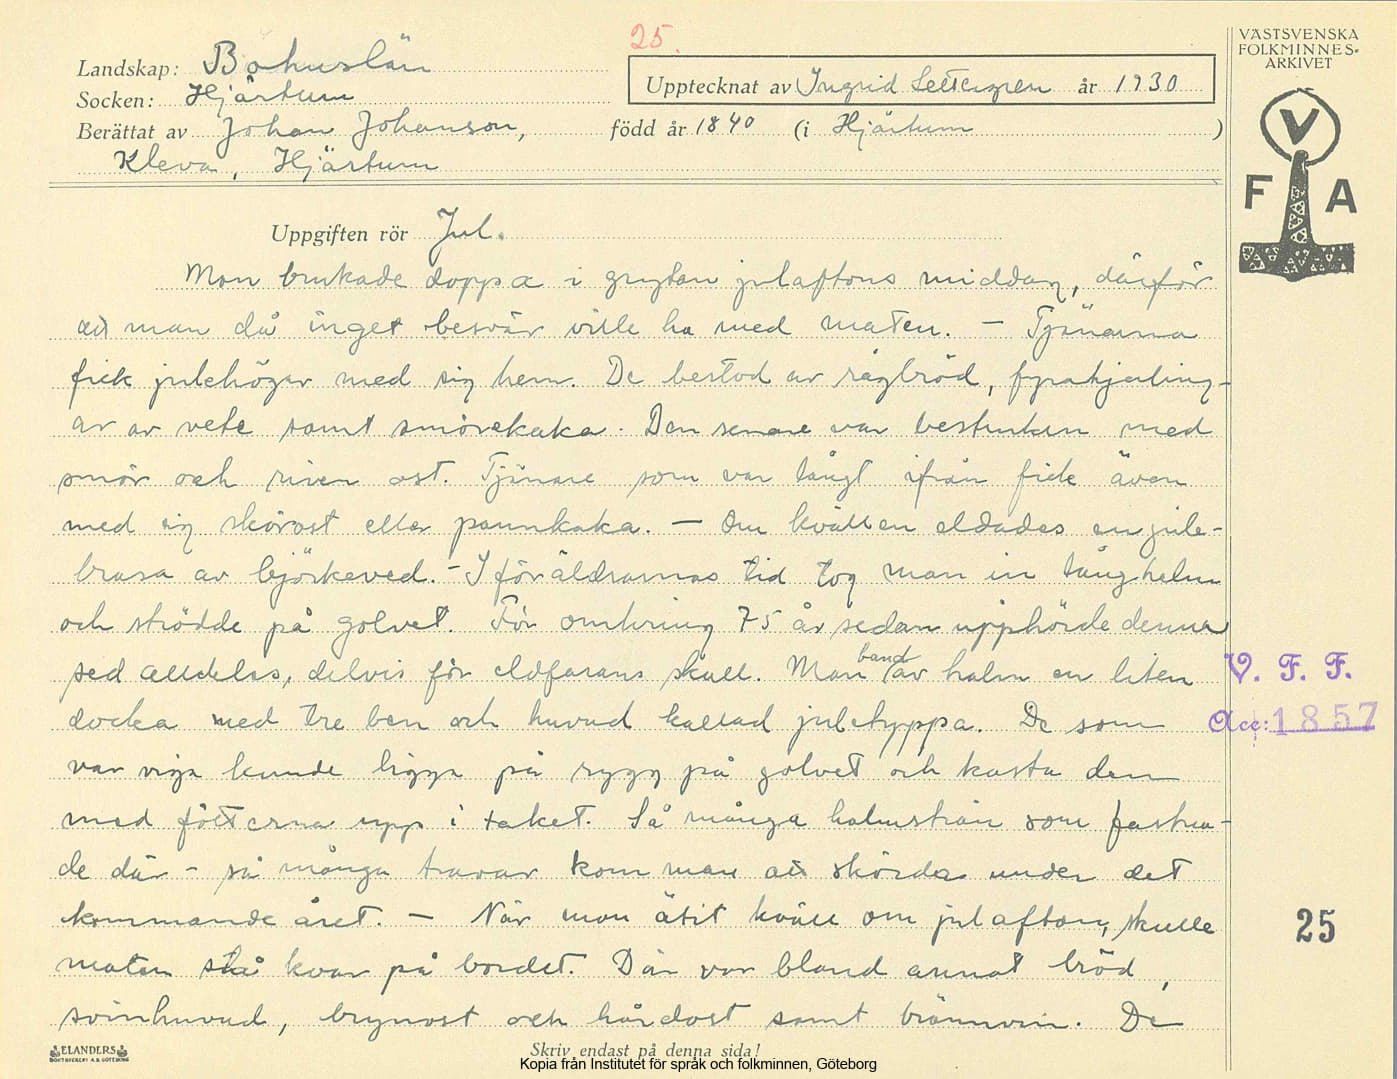 25.
VÄSTSVENSKA
FOLKMINNES-
ARKIVET
Landskap: Bohuslän
Upptecknat av Ingrid Settergren år 1930
Socken: Hjärtum
Berättat av Johan Johanson, född år 1840 (i Hjärtum )
Kleva, Hjärtum
V
F A
Uppgiften rör Jul.
Man brukade doppa i grytan julaftons middag, därför
att man då inget besvär ville ha med maten. – Tjänarna
fick julehögar med sig hem. De bestod av rågbröd, fyrahjerling-
ar av vete samt smörekaka. Den senare var bestruken med
smör och riven ost. Tjänare som var långt ifrån fick även
med sig skörost eller pannkaka. – Om kvällen eldades en jule-
brasa av björkeved. – I föräldrarnas tid tog man in långhalm
och strödde på golvet. För omkring 75 år sedan upphörde denna
sed alldeles, delvis för eldfarans skull. Man band av halm en liten
docka med tre ben och huvud kallad juletyppa. De som
var viga kunde ligga på rygg på golvet och kasta den
med fötterna upp i taket. Så många halmstrån som fastna-
de där – så många travar kom man att skörda under det
kommande året. – När man ätit kväll om julafton, skulle
maten stå kvar på bordet. Där var bland annat bröd,
svinhuvud, brynost och hårdost samt brännvin. De
V. F. F.
Acc: 1857
25
ELANDERS
BOKTRYCKERI A.B. GÖTEBORG
Skriv endast på denna sida!
Kopia från Institutet för språk och folkminnen, Göteborg